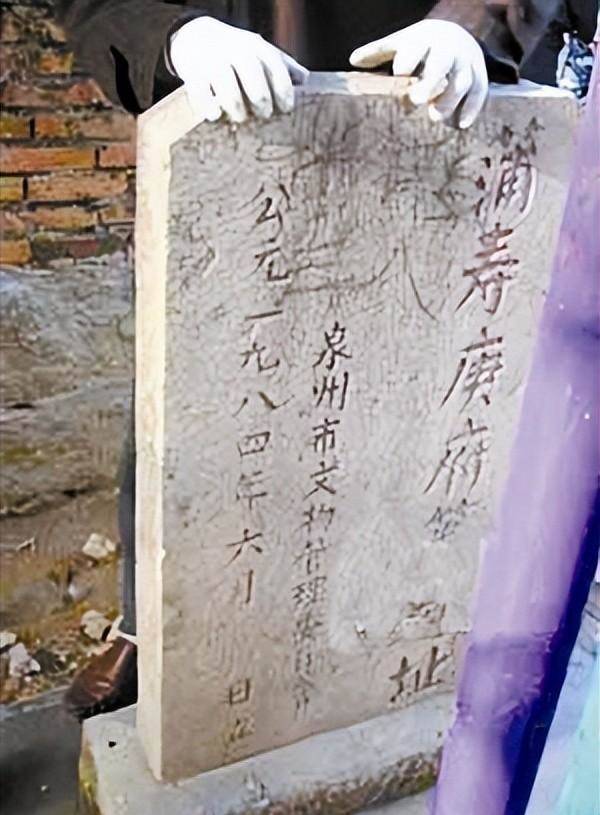 蒲寿庚府第址
泉州市文物管理委员会
公元一九八四年六月 日立